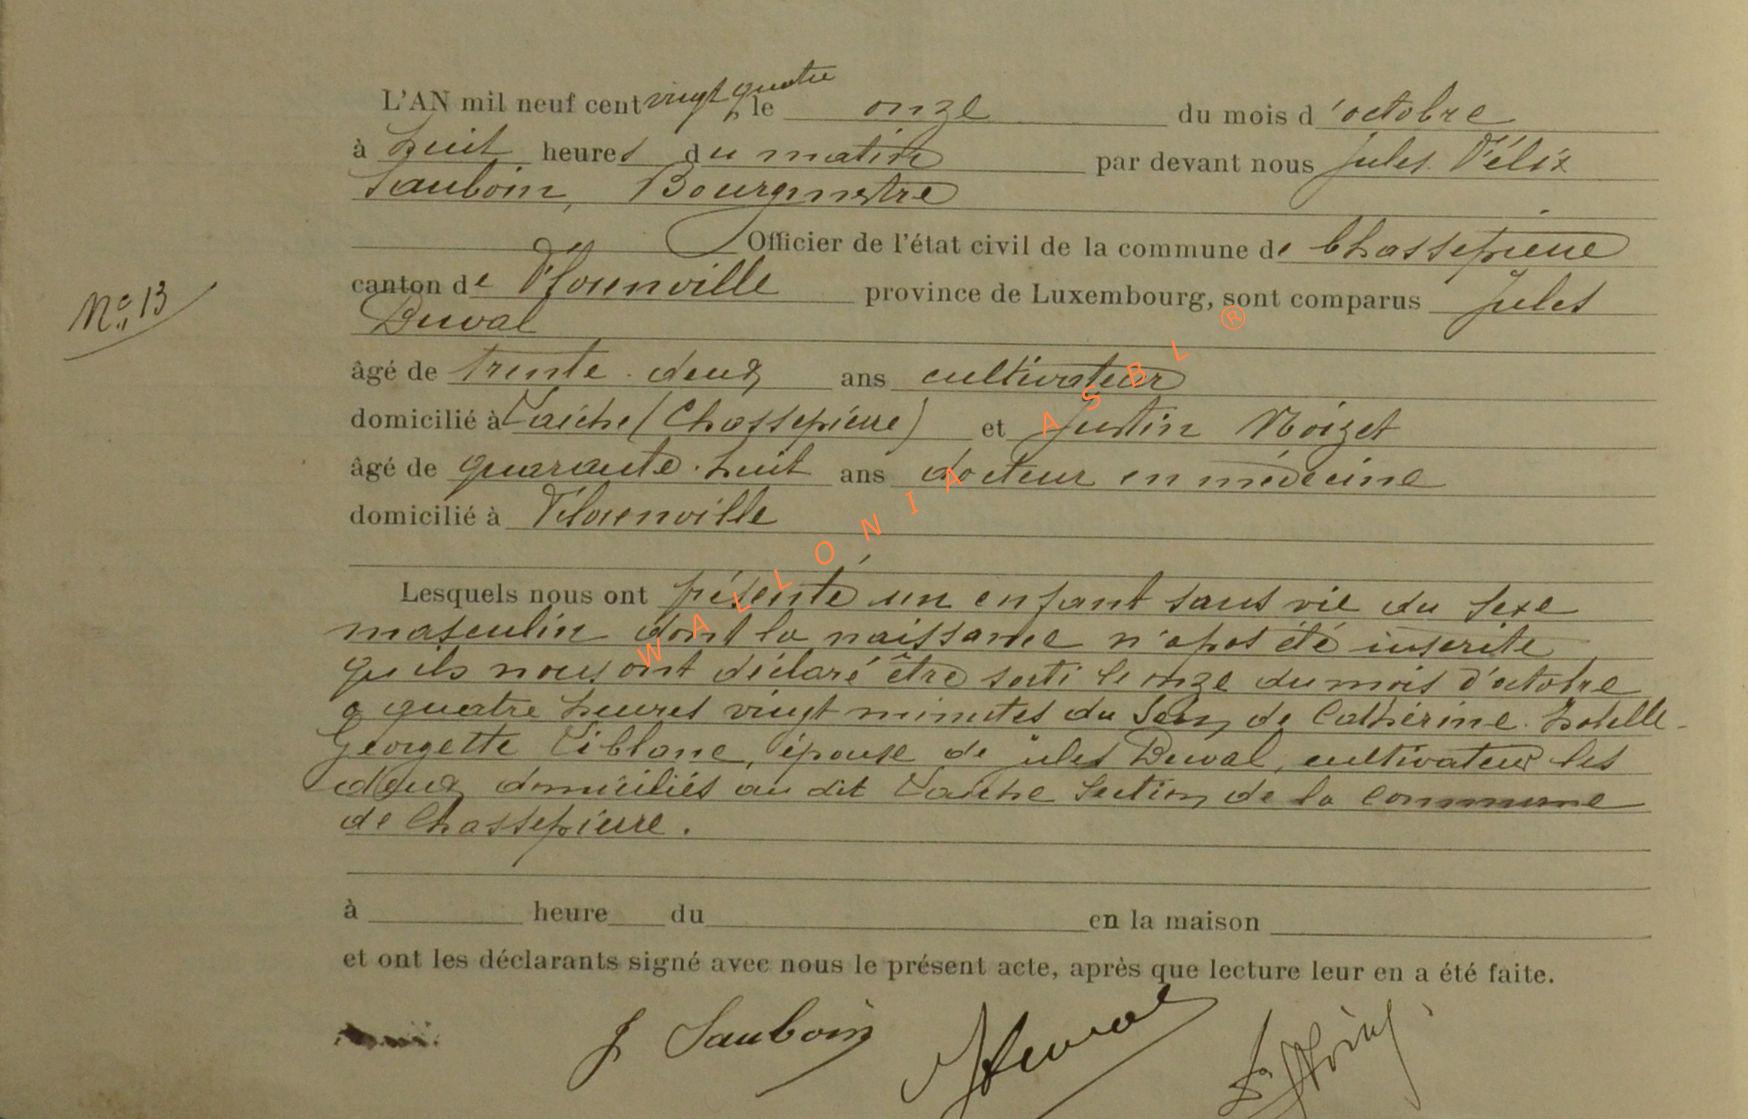 L'AN mil neuf cent vingt quatre, le onze du mois d'octobre
à huit heures du matin par devant nous Jules Félix
Sauboin, Bourgmestre
Officier de l'état civil de la commune de Chassepierre
canton de Florenville province de Luxembourg, sont comparus Jules
Duval
Nº 13
âgé de trente-deux ans cultivateur
domicilié à Laiche (Chassepierre) et Justin Noizet
âgé de quarante-huit ans docteur en médecine
domicilié à Florenville
Lesquels nous ont présenté un enfant sans vie du sexe
masculin dont la naissance n'a pas été inscrite
qu'ils nous ont déclaré être sorti le onze du mois d'octobre
à quatre heures vingt minutes du sein de Cathérine-
Georgette Liblanc, épouse de Jules Duval, cultivateur les
deux domiciliés au dit Laiche Section de la commune
de Chassepierre.
à heure du en la maison
et ont les déclarants signé avec nous le présent acte, après que lecture leur en a été faite.
J Sauboin JDuval
WALLONIA ASBL ®